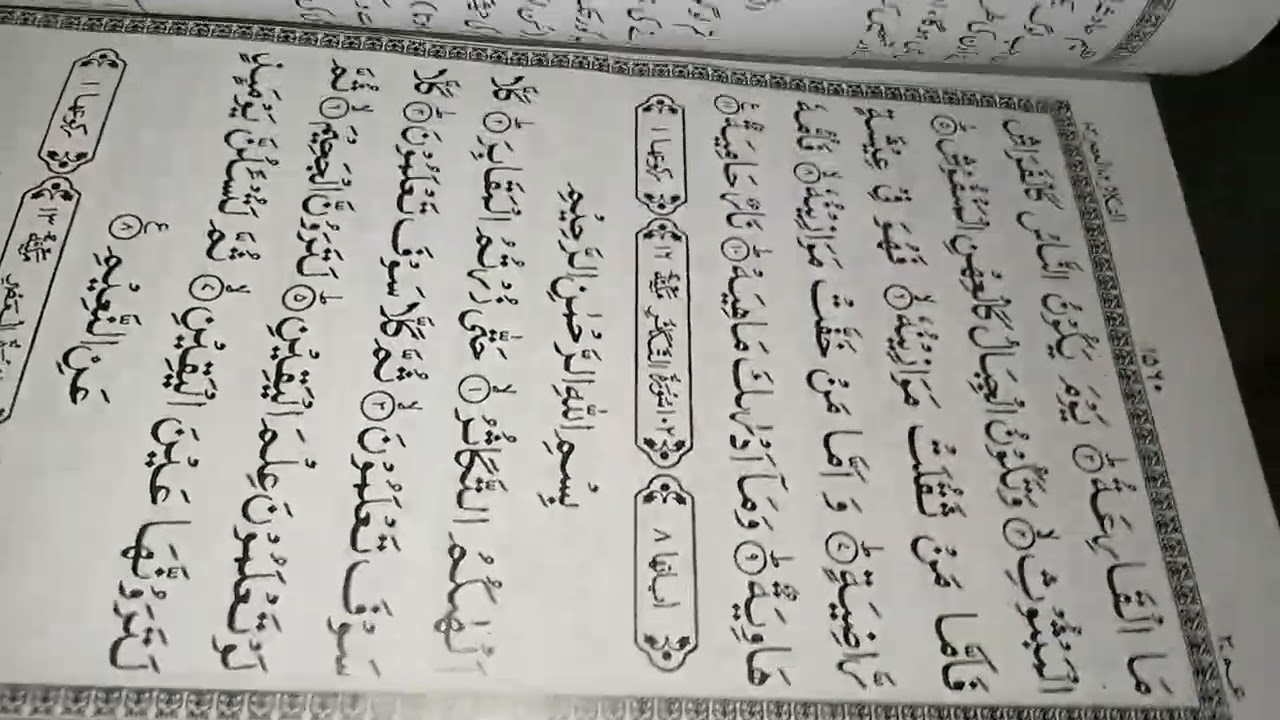 عمّ ٣٠
١٥٦٠
مَا الْقَارِعَةُ ؕ﴿٣﴾ يَوْمَ يَكُوْنُ النَّاسُ كَالْفَرَاشِ
الْمَبْثُوْثِ ۙ﴿٤﴾ وَتَكُوْنُ الْجِبَالُ كَالْعِهْنِ الْمَنْفُوْشِ ؕ﴿٥﴾
فَاَمَّا مَنْ ثَقُلَتْ مَوَازِيْنُهٗ ۙ﴿٦﴾ فَهُوَ فِيْ عِيْشَةٍ
رَّاضِيَةٍ ؕ﴿٧﴾ وَ اَمَّا مَنْ خَفَّتْ مَوَازِيْنُهٗ ۙ﴿٨﴾ فَاُمُّهٗ
هَاوِيَةٌ ؕ﴿٩﴾ وَمَاۤ اَدْرٰىكَ مَاهِيَهْ ؕ﴿١٠﴾ نَارٌ حَامِيَةٌ ﴿١١﴾
اٰيَاتُهَا ٨ ١٠٢ سُوْرَةُ التَّكَاثُرِ مَكِّيَّةٌ ١٦ رُكُوْعُهَا ١
بِسْمِ اللّٰهِ الرَّحْمٰنِ الرَّحِيْمِ
اَلْهٰىكُمُ التَّكَاثُرُ ۙ﴿١﴾ حَتّٰى زُرْتُمُ الْمَقَابِرَ ؕ﴿٢﴾ كَلَّا
سَوْفَ تَعْلَمُوْنَ ۙ﴿٣﴾ ثُمَّ كَلَّا سَوْفَ تَعْلَمُوْنَ ؕ﴿٤﴾ كَلَّا
لَوْ تَعْلَمُوْنَ عِلْمَ الْيَقِيْنِ ؕ﴿٥﴾ لَتَرَوُنَّ الْجَحِيْمَ ۙ﴿٦﴾ ثُمَّ
لَتَرَوُنَّهَا عَيْنَ الْيَقِيْنِ ۙ﴿٧﴾ ثُمَّ لَتُسْـَٔلُنَّ يَوْمَىِٕذٍ
عَنِ النَّعِيْمِ ﴿٨﴾